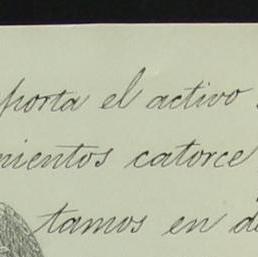 porta el activo
mientos catorce
tamos en